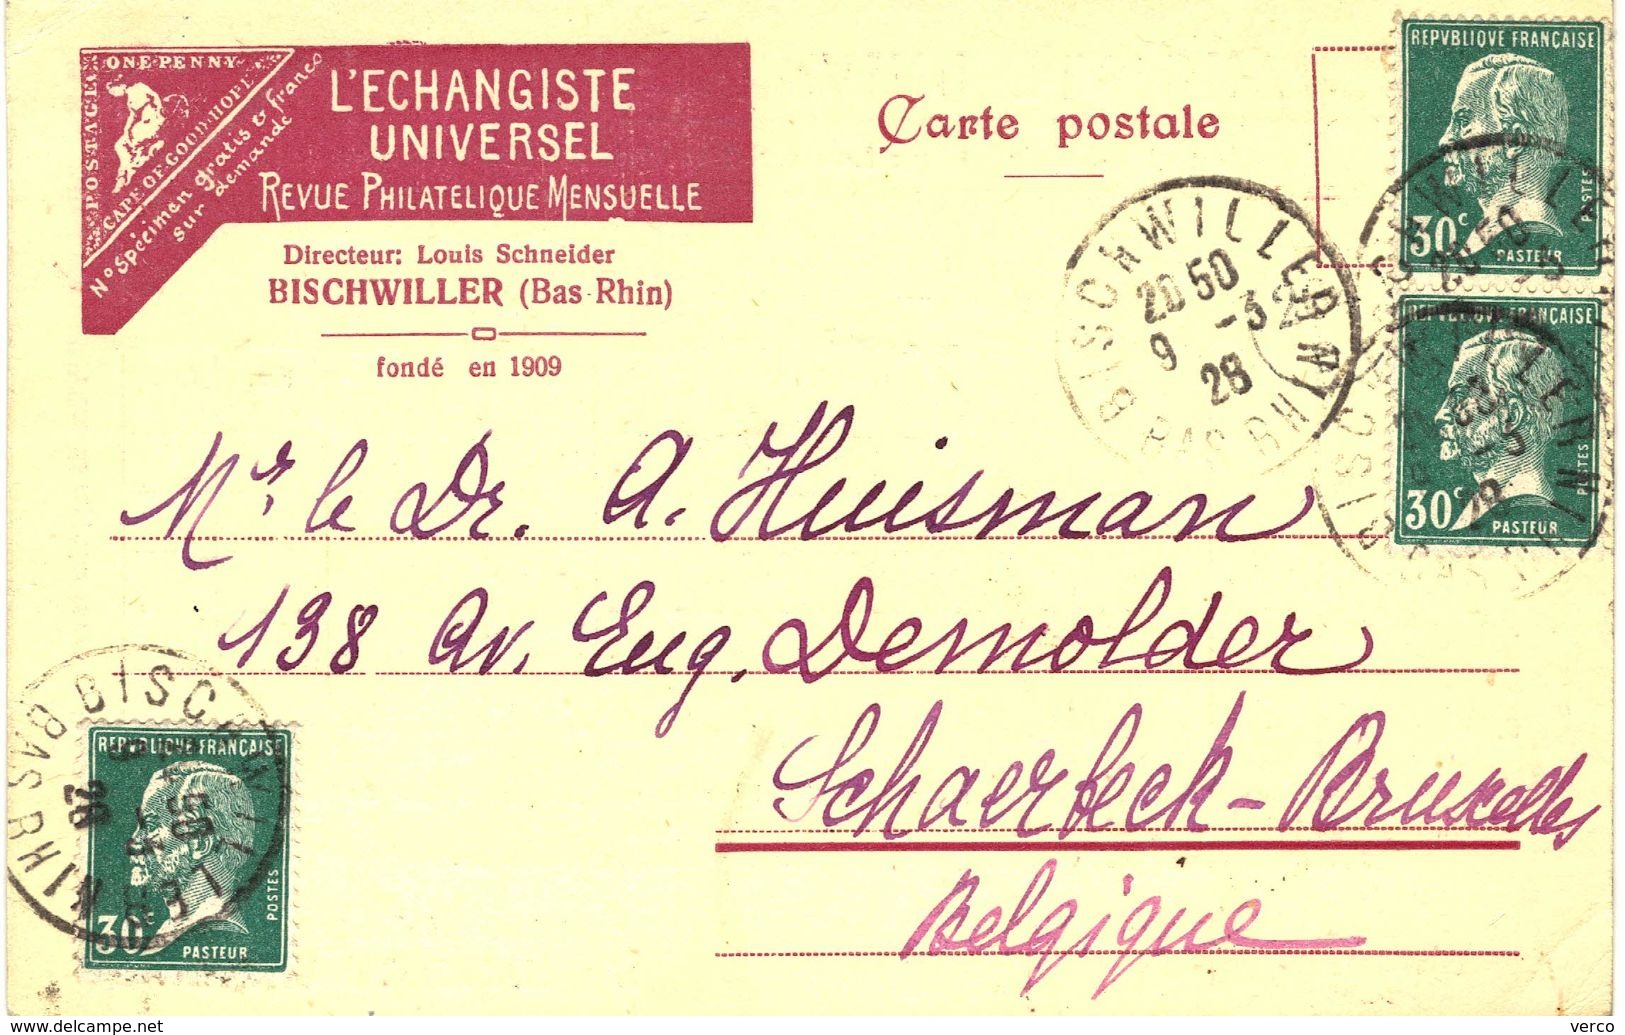 POSTAGE
ONE PENNY
CAPE OF GOOD HOPE
No Spécimen gratis & franco
sur demande
L'ECHANGISTE
UNIVERSEL
REVUE PHILATELIQUE MENSUELLE
Directeur: Louis Schneider
BISCHWILLER (Bas-Rhin)
fondé en 1909
Carte postale
REPVBLIQVE FRANÇAISE
30c
POSTES
PASTEUR
BISCHWILLER
20 50
9 -3
28
BAS RHIN
REPVBLIQVE FRANÇAISE
30c
POSTES
PASTEUR
Mr. le Dr. A. Huisman
138 Av. Eug. Demolder
Schaerbeck-Bruxelles
Belgique
BISCHWILLER
BAS RHIN
28
REPVBLIQVE FRANÇAISE
30c
POSTES
PASTEUR
delcampe.net
verco